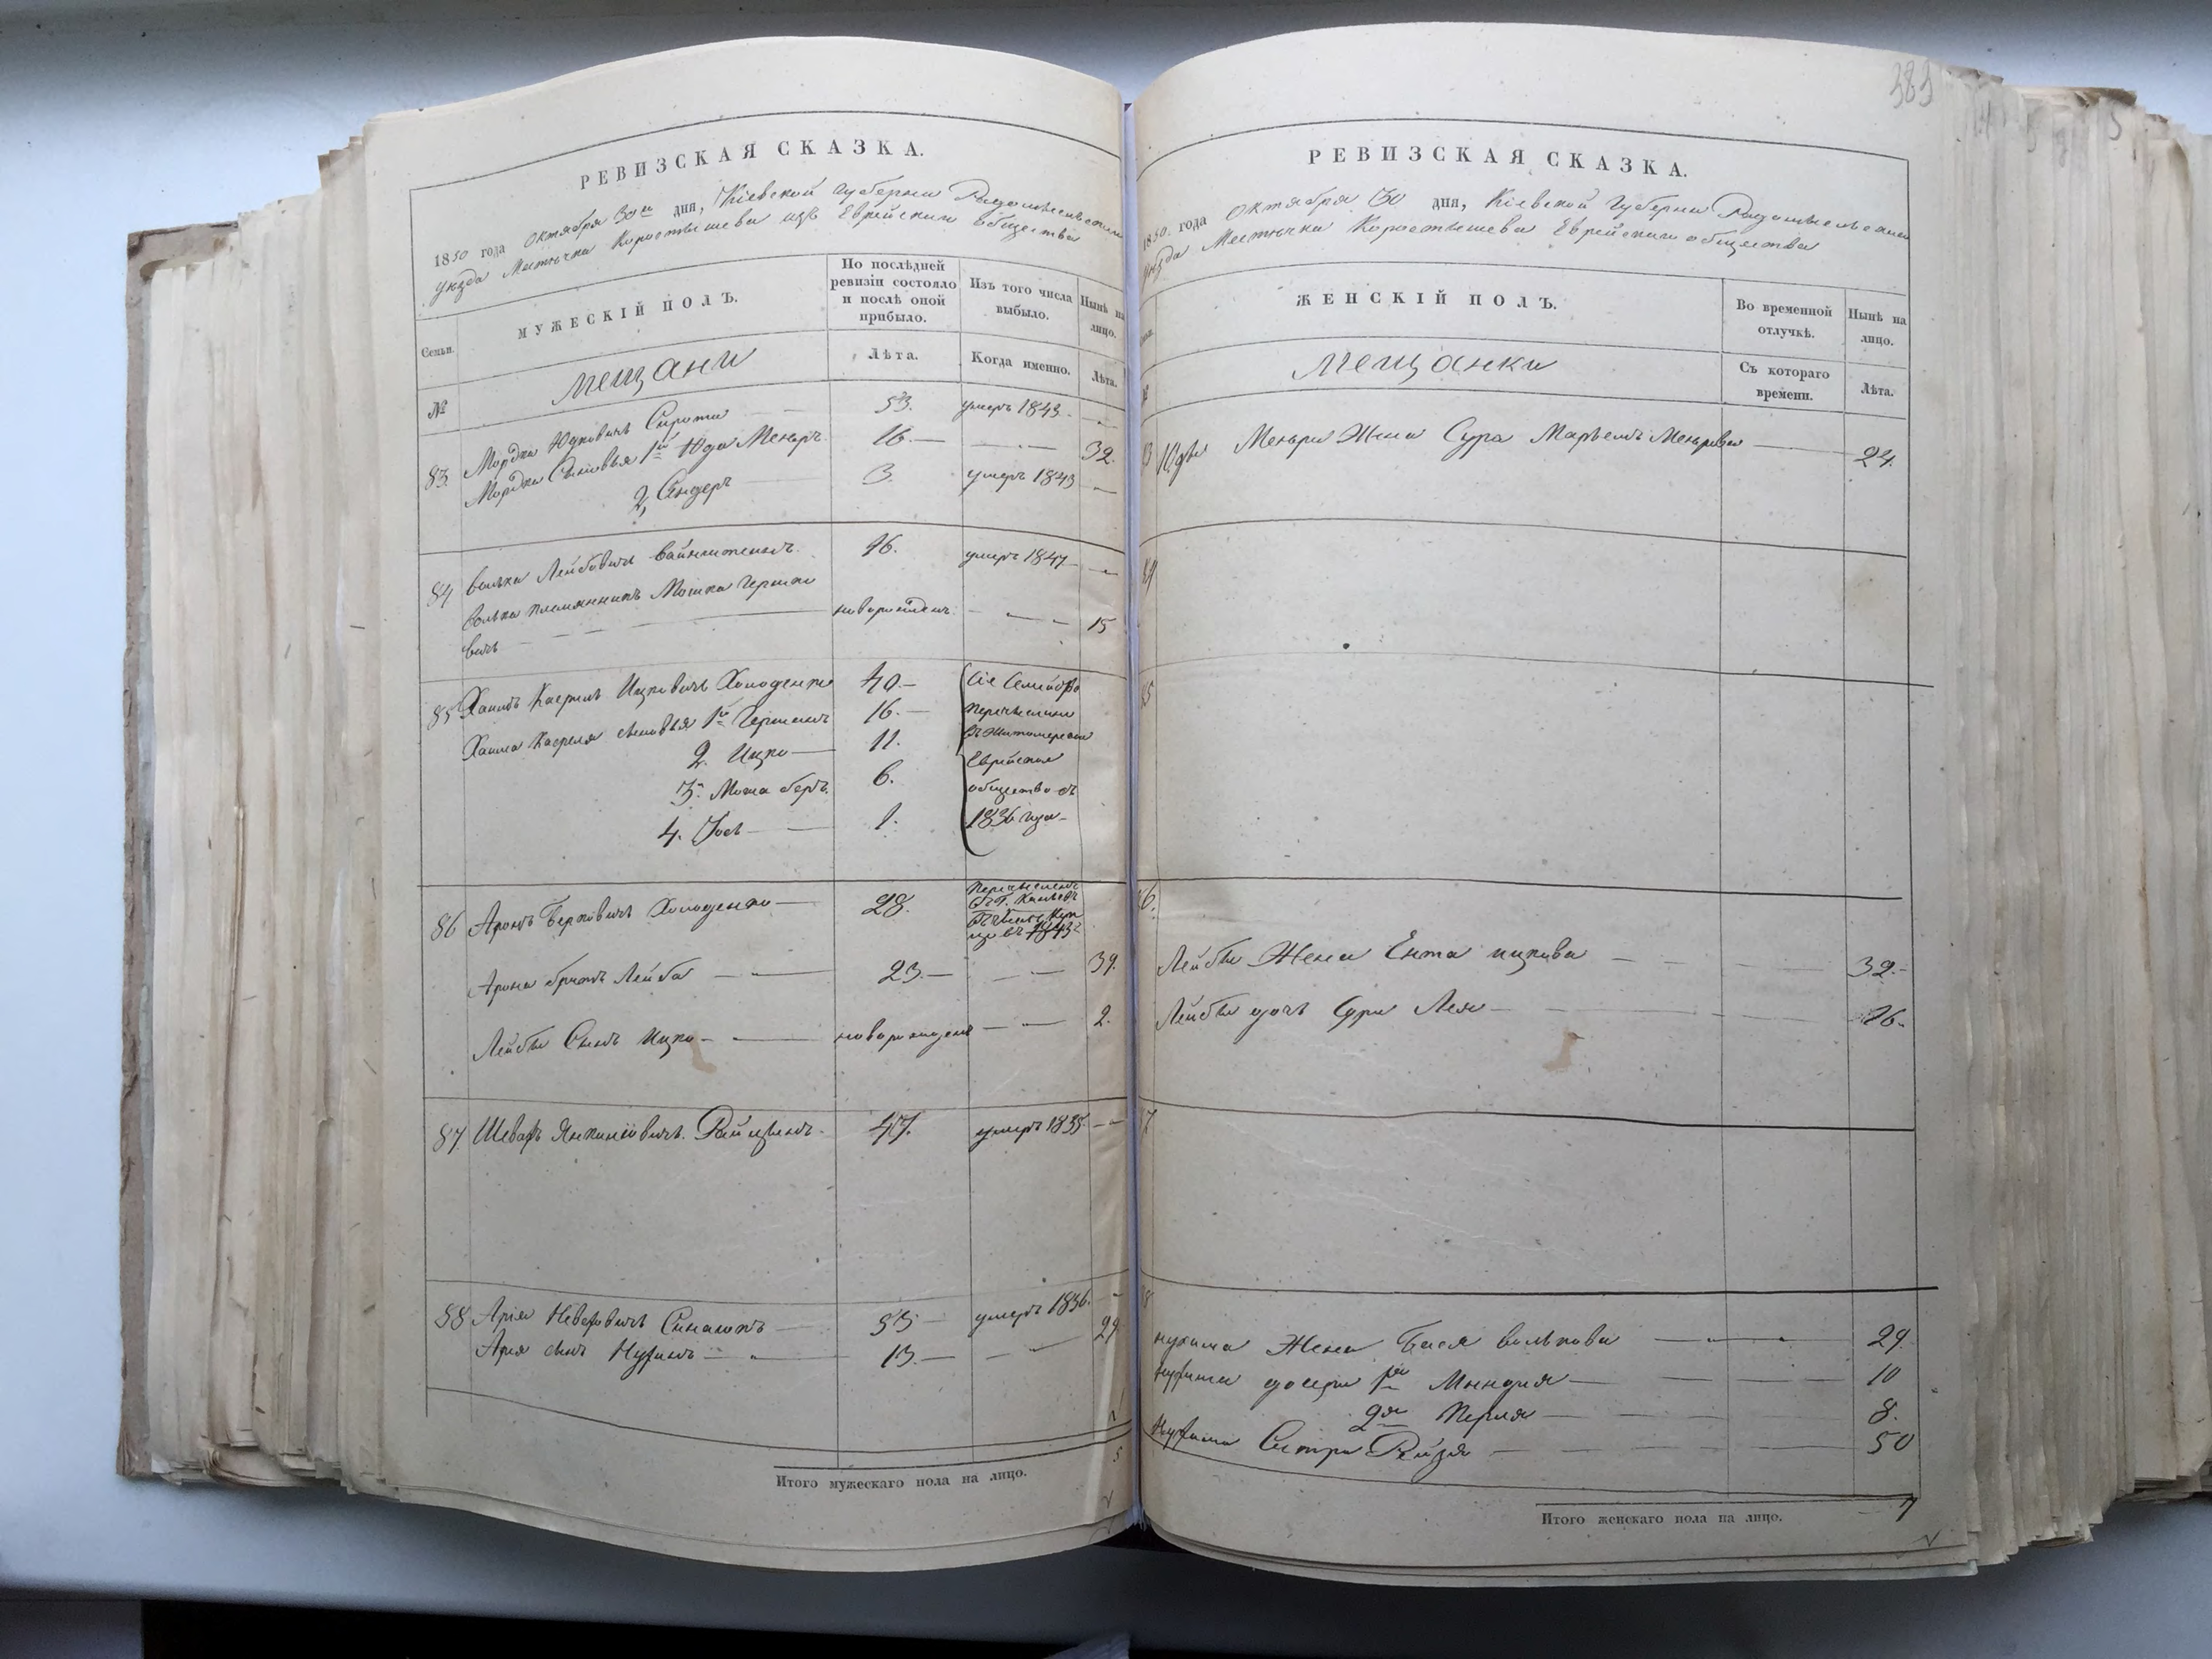 383
РЕВИЗСКАЯ СКАЗКА.
1850 года Октября 30го дня, Кіевской Губерніи Радомысльского
уѣзда Мѣстечка Коростышева изъ Еврейскаго общества
Семьи.
МУЖЕСКІЙ ПОЛЪ.
По послѣдней ревизіи состояло и послѣ оной прибыло.
Изъ того числа выбыло.
Нынѣ на лицо.
№
Мещани
Лѣта.
Когда именно.
Лѣта.
83. Мордко Юдковичъ Сирота 53. умеръ 1843
Мордка Сыновья 1й Юда Меньръ 16. 32.
2, Сендеръ 3. умеръ 1843
84 Волько Лейбовичъ 46. умеръ 1847
Волька племянникъ Мошко Гершко
вичъ новорожденъ. 15
85 Хаимъ Касриль Ицковичъ Холоденко 40.
Хаима Касриля сыновья 1й Гершонъ 16.
2. Ицко 11.
3. Моша беръ 6.
4. Іось 1.
Сіе Семейство
перечислено
въ Житомерское
Еврейское
общество съ
1836 года
86 Аронъ Берковичъ Холоденко 28.
Перечисленъ
въ Г. Кіевъ
1843
Арона братъ Лейба 23. 39.
Лейбы Сынъ Ицко новорожденъ 2.
87. Янкелевичъ. 47. умеръ 1835
88 Арія 55 умеръ 1836.
Арія сынъ Нухимъ 13. 29
Итого мужескаго пола на лицо. 5
РЕВИЗСКАЯ СКАЗКА.
1850. года Октября 30 дня, Кіевской Губерніи Радомысльского
уѣзда Мѣстечка Коростышева Еврейскаго общества
ЖЕНСКІЙ ПОЛЪ.
Во временной отлучкѣ.
Нынѣ на лицо.
Мещанки
Съ котораго времени.
Лѣта.
Юды Меньра Жена Сура Марьемъ 24.
Лейбы Жена Ента ицкова 32.
Лейбы дочь Сура Лея 16.
нухима Жена Бася волькова 29.
нухима дочери 1я Миндля 10
2я Перля 8.
Нухима Сестра Рейзя 50
Итого женскаго пола на лицо. 7